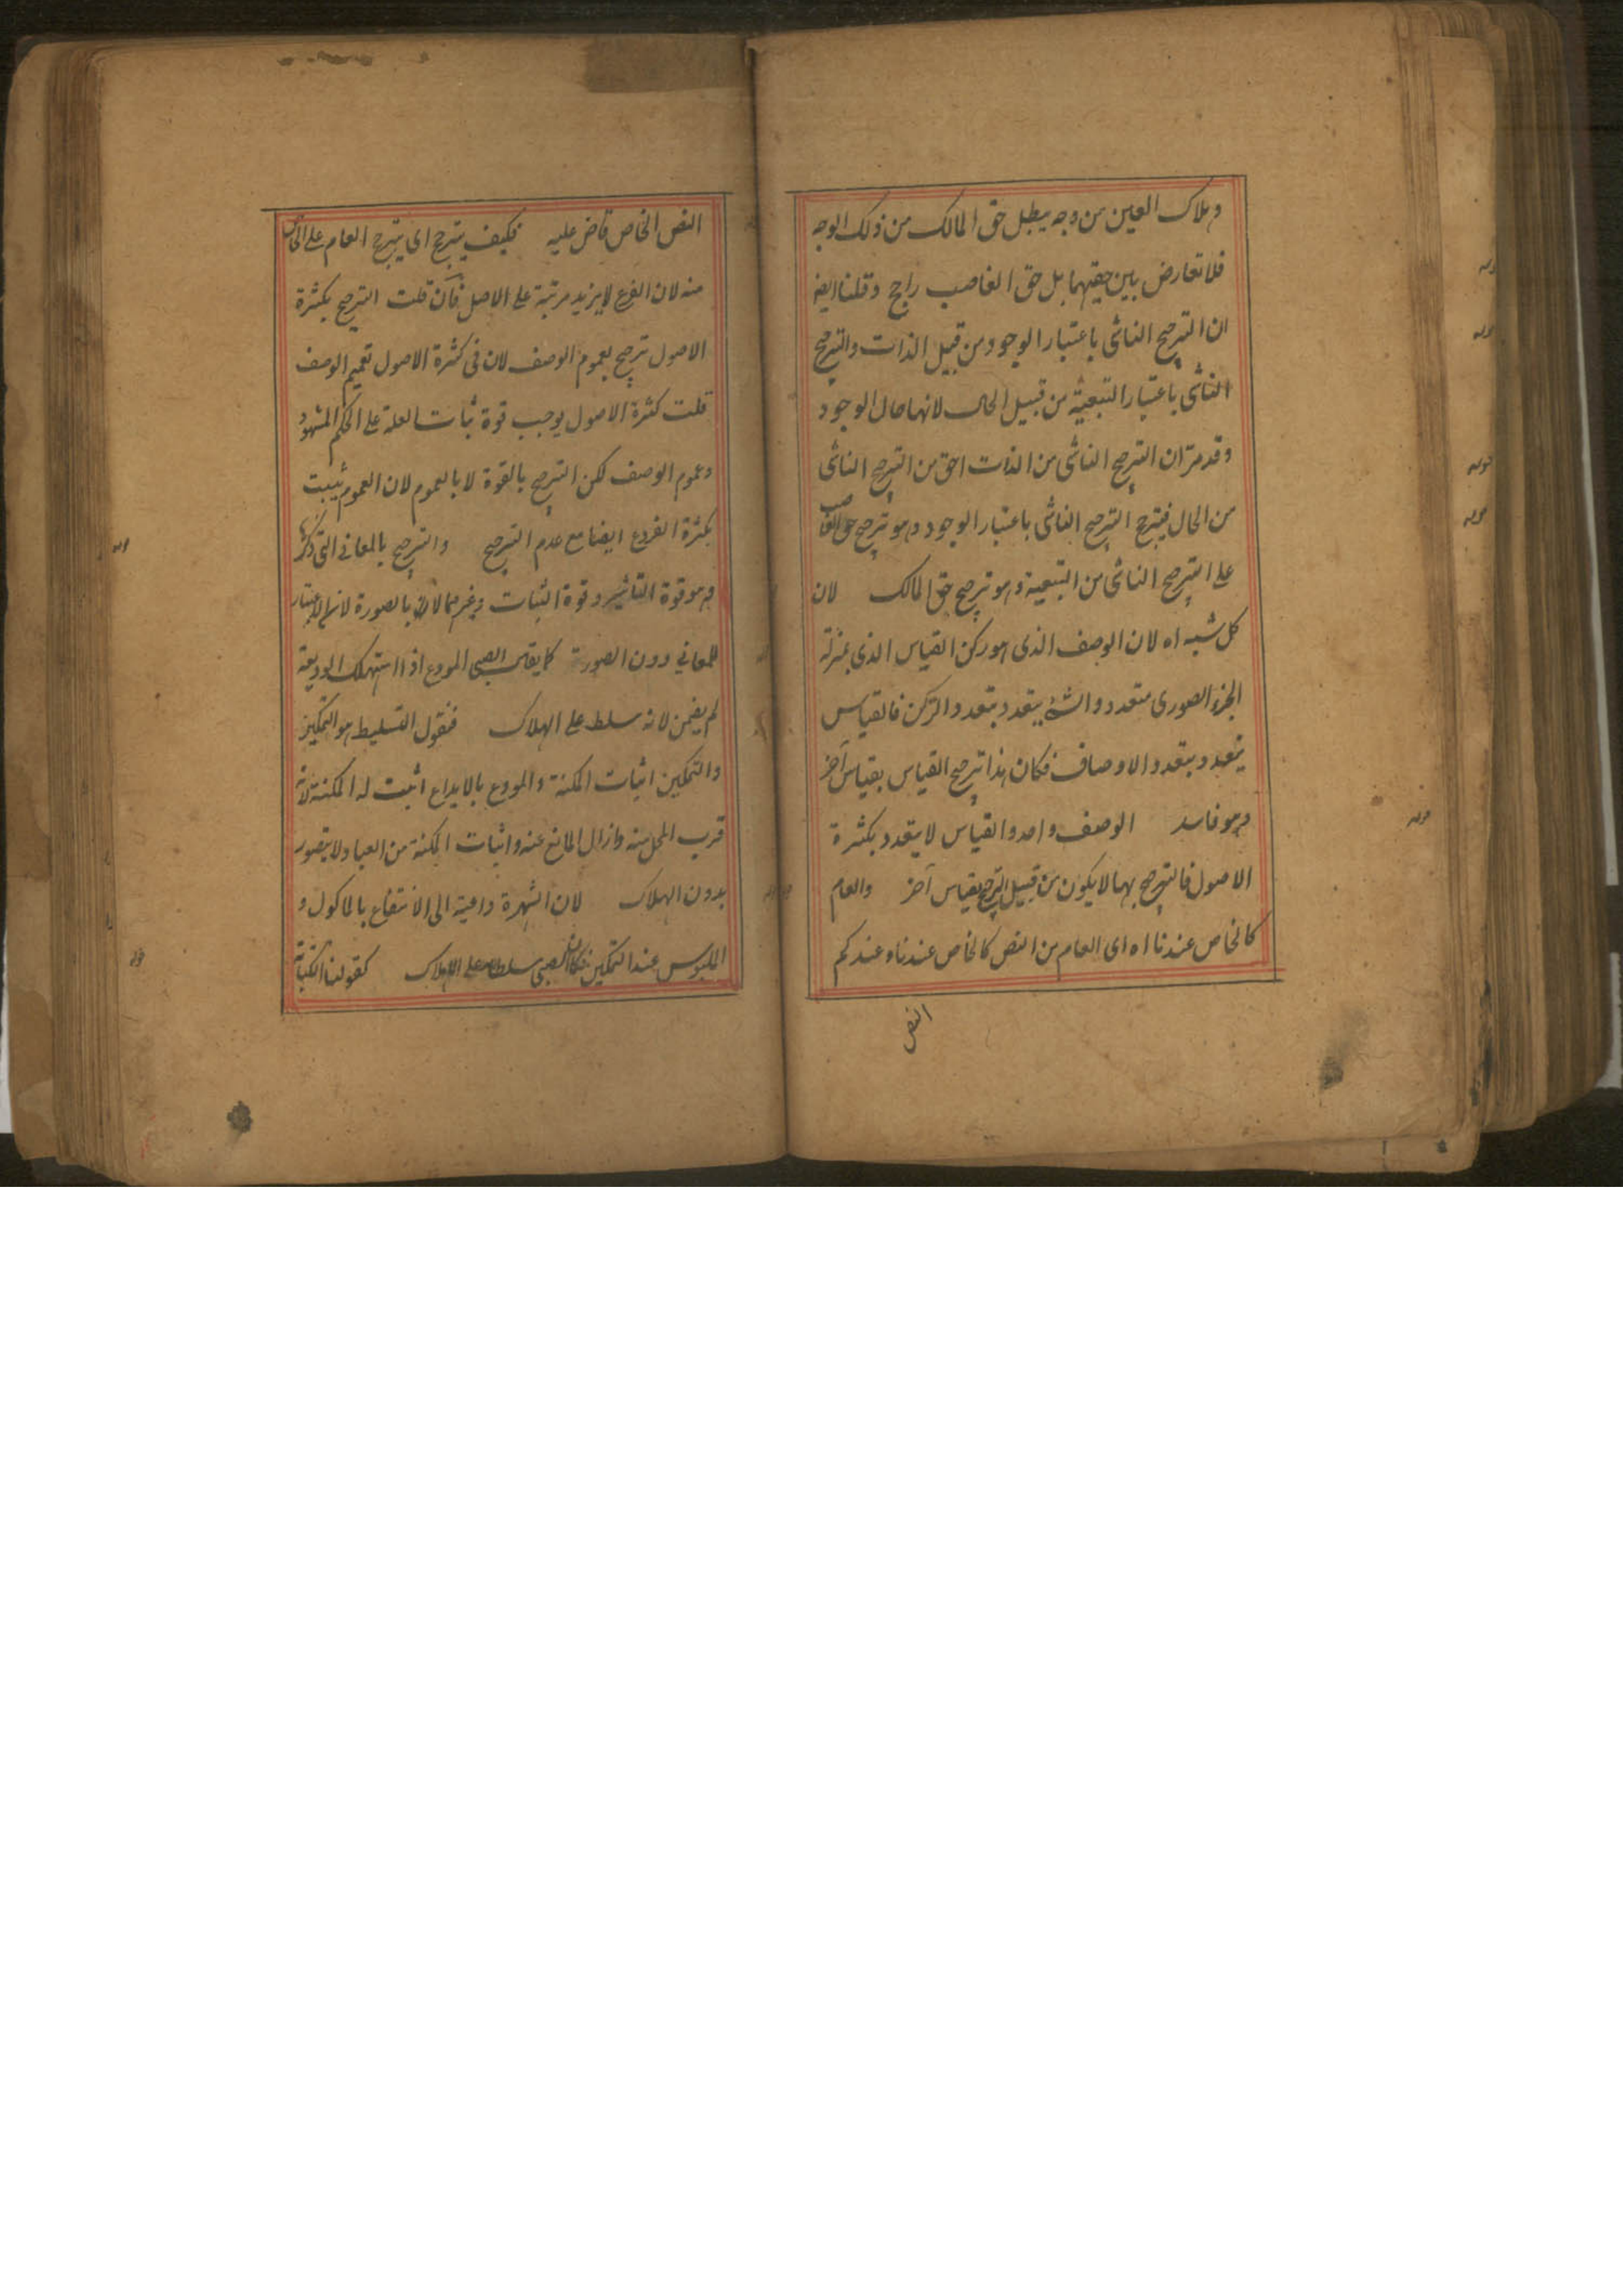 وهلاك العين من وجه يبطل حق المالك من ذلك الوجه
فلا تعارض بين حقيهما بل حق الغاصب راجح وقلنا ايضا
ان الترجيح الناشى باعتبار الوجود من قبيل الذات والترجيح
الناشى باعتبار التبعية من قبيل الحال لانها حال الوجود
وقد مر ان الترجيح الناشى من الذات احق من الترجيح الناشى
من الحال فيترجح الترجيح الناشى باعتبار الوجود وهو ترجيح حق الغاصب
على الترجيح الناشى من التبعية وهو ترجيح حق المالك لان
كل شبه اه لان الوصف الذى هو ركن القياس الذى بمنزلة
الجزء الصورى متعدد والشئ يتعدد بتعدد الركن فالقياس
يتعدد بتعدد الاوصاف فكان هذا ترجيح القياس بقياس آخر
وهو فاسد الوصف واحد والقياس لا يتعدد بكثرة
الاصول فالترجيح بهما لا يكون من قبيل الترجيح بقياس آخر والعام
كالخاص عندنا اه اى العام من النص كالخاص عندنا وعندكم
النص
النص الخاص قاض عليه فكيف يترجح اى يترجح العام على الخاص
منه لان الفرع لا يزيد مرتبة على الاصل فان قلت الترجيح بكثرة
الاصول ترجيح بعموم الوصف لان فى كثرة الاصول تعميم الوصف
قلت كثرة الاصول يوجب قوة ثبات العلة على الحكم المشهود
وعموم الوصف لكن الترجيح بالقوة لا بالعموم لان العموم يثبت
بكثرة الفروع ايضا مع عدم الترجيح والترجيح بالمعانى التى ذكرنا
وهو قوة التاثير وقوة الثبات وغيرهما لا بالصورة لان الاعتبار
للمعانى دون الصورة كما يقال الصبى المودع اذا استهلك الوديعة
لم يضمن لانه سلط على الهلاك فنقول التسليط هو التمكين
والتمكين اثبات المكنة والمودع بالايداع اثبت له المكنة لانه
قرب المحل منه وازال المانع عنه واثبات المكنة من العباد لا يتصور
بدون الهلاك لان الشهرة داعية الى الانتفاع بالماكول و
الملبوس عند التمكين فكان الصبى سلطا على الهلاك كقولنا الكتابة